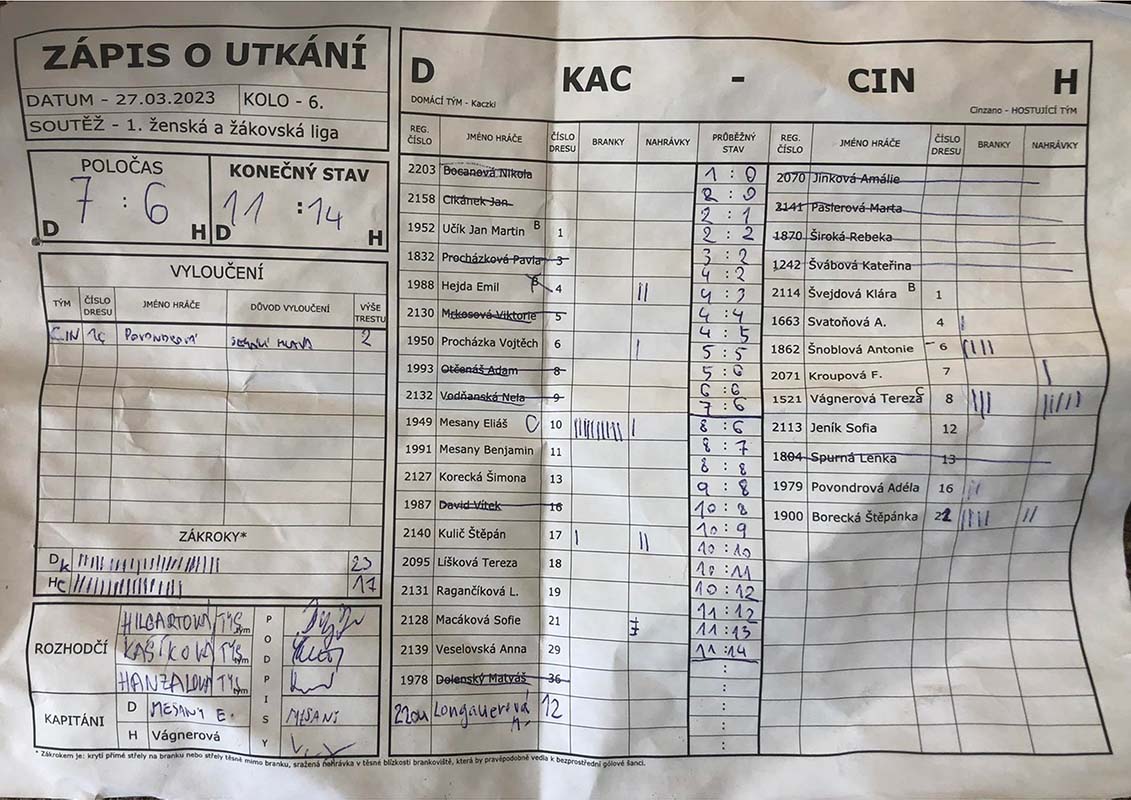 ZÁPIS O UTKÁNÍ
DATUM - 27.03.2023 KOLO - 6.
SOUTĚŽ - 1. ženská a žákovská liga
POLOČAS KONEČNÝ STAV
7 : 6 11 : 14
D H D H
VYLOUČENÍ
TÝM ČÍSLO DRESU JMÉNO HRÁČE DŮVOD VYLOUČENÍ VÝŠE TRESTU
CIN 16 POVONDROVÁ HLAVA 2
ZÁKROKY*
DK 23
HC 17
ROZHODČÍ
HILGARTOVÁ TYS tým
KAŠÍKOVÁ TYS tým
HANZALOVÁ TYS tým
PODPISY
KAPITÁNI
D MESANY E. MESANI
H Vágnerová
D KAC - CIN H
DOMÁCÍ TÝM - Kaczki Cinzano - HOSTUJÍCÍ TÝM
REG. ČÍSLO JMÉNO HRÁČE ČÍSLO DRESU BRANKY NAHRÁVKY
2203 Bocanová Nikola
2158 Cikánek Jan
1952 Učík Jan Martin B 1
1832 Procházková Pavla 3
1988 Hejda Emil 4
2130 Mrkosová Viktorie 5
1950 Procházka Vojtěch 6
1993 Otčenáš Adam 8
2132 Vodňanská Nela 9
1949 Mesany Eliáš C 10
1991 Mesany Benjamin 11
2127 Korecká Šimona 13
1987 David Vítek 16
2140 Kulič Štěpán 17
2095 Líšková Tereza 18
2131 Ragančíková L. 19
2128 Macáková Sofie 21
2139 Veselovská Anna 29
1978 Dolenský Matyáš 36
Longauerová 12
PRŮBĚŽNÝ STAV
1 : 0
2 : 0
2 : 1
2 : 2
3 : 2
4 : 2
4 : 3
4 : 4
4 : 5
5 : 5
5 : 6
6 : 6
7 : 6
8 : 6
8 : 7
8 : 8
9 : 8
10 : 8
10 : 9
10 : 10
10 : 11
10 : 12
11 : 12
11 : 13
11 : 14
:
:
:
:
REG. ČÍSLO JMÉNO HRÁČE ČÍSLO DRESU BRANKY NAHRÁVKY
2070 Jinková Amálie
2141 Paslerová Marta
1870 Široká Rebeka
1242 Švábová Kateřina
2114 Švejdová Klára B 1
1663 Svatoňová A. 4
1862 Šnoblová Antonie 6
2071 Kroupová F. 7
1521 Vágnerová Tereza C 8
2113 Jeník Sofia 12
1804 Spurná Lenka 13
1979 Povondrová Adéla 16
1900 Borecká Štěpánka 22
* Zákrokem je: krytí přímé střely na branku nebo střely těsně mimo branku, sražená nahrávka v těsné blízkosti brankoviště, která by pravěpodobně vedla k bezprostřední gólové šanci.